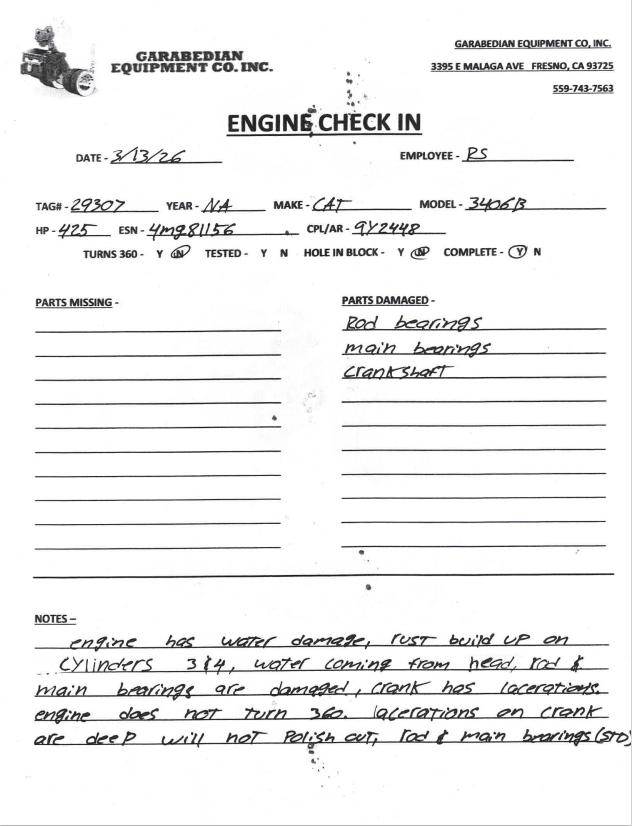 GARABEDIAN
EQUIPMENT CO. INC.
GARABEDIAN EQUIPMENT CO, INC.
3395 E MALAGA AVE FRESNO, CA 93725
559-743-7563
ENGINE CHECK IN
DATE - 3/13/26 EMPLOYEE - RS
TAG# - 29307 YEAR - NA MAKE - CAT MODEL - 3406B
HP - 425 ESN - 4mg81156 CPL/AR - 9Y2448
TURNS 360 - Y N TESTED - Y N HOLE IN BLOCK - Y N COMPLETE - Y N
PARTS MISSING - PARTS DAMAGED -
Rod bearings
main bearings
crankshaft
NOTES –
engine has water damage, rust build up on
cylinders 3 & 4, water coming from head, rod &
main bearings are damaged, crank has lacerations.
engine does not turn 360. lacerations on crank
are deep will not polish out, rod & main bearings (STD)